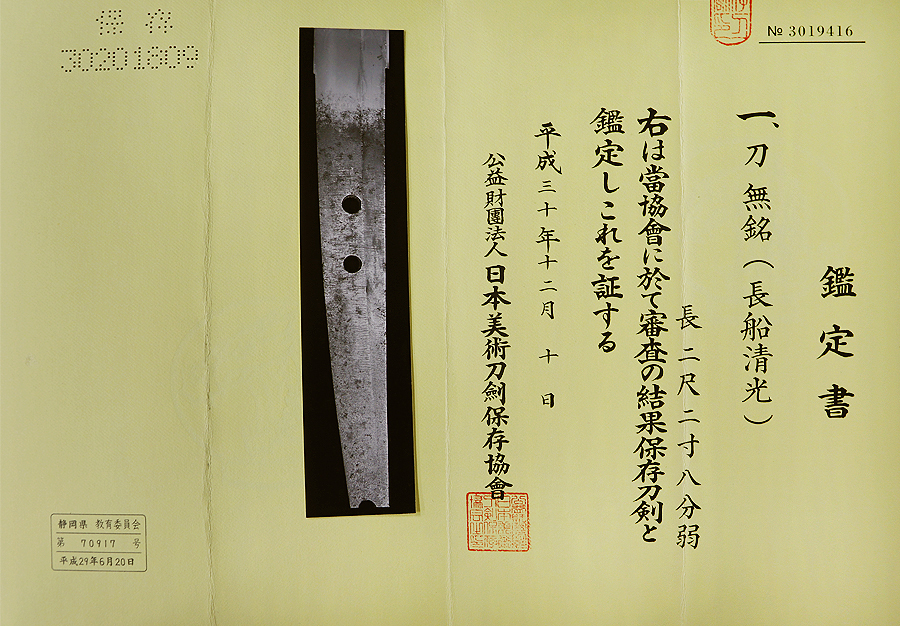 № 3019416
鑑定書
一、刀 無銘（長船清光）
長 二尺二寸八分弱
右は當協會に於て審査の結果保存刀剣と
鑑定しこれを証する
平成三十年十二月 十 日
公益財團法人 日本美術刀劍保存協會
保存
30201809
静岡県 教育委員会
第 70917 号
平成29年6月20日